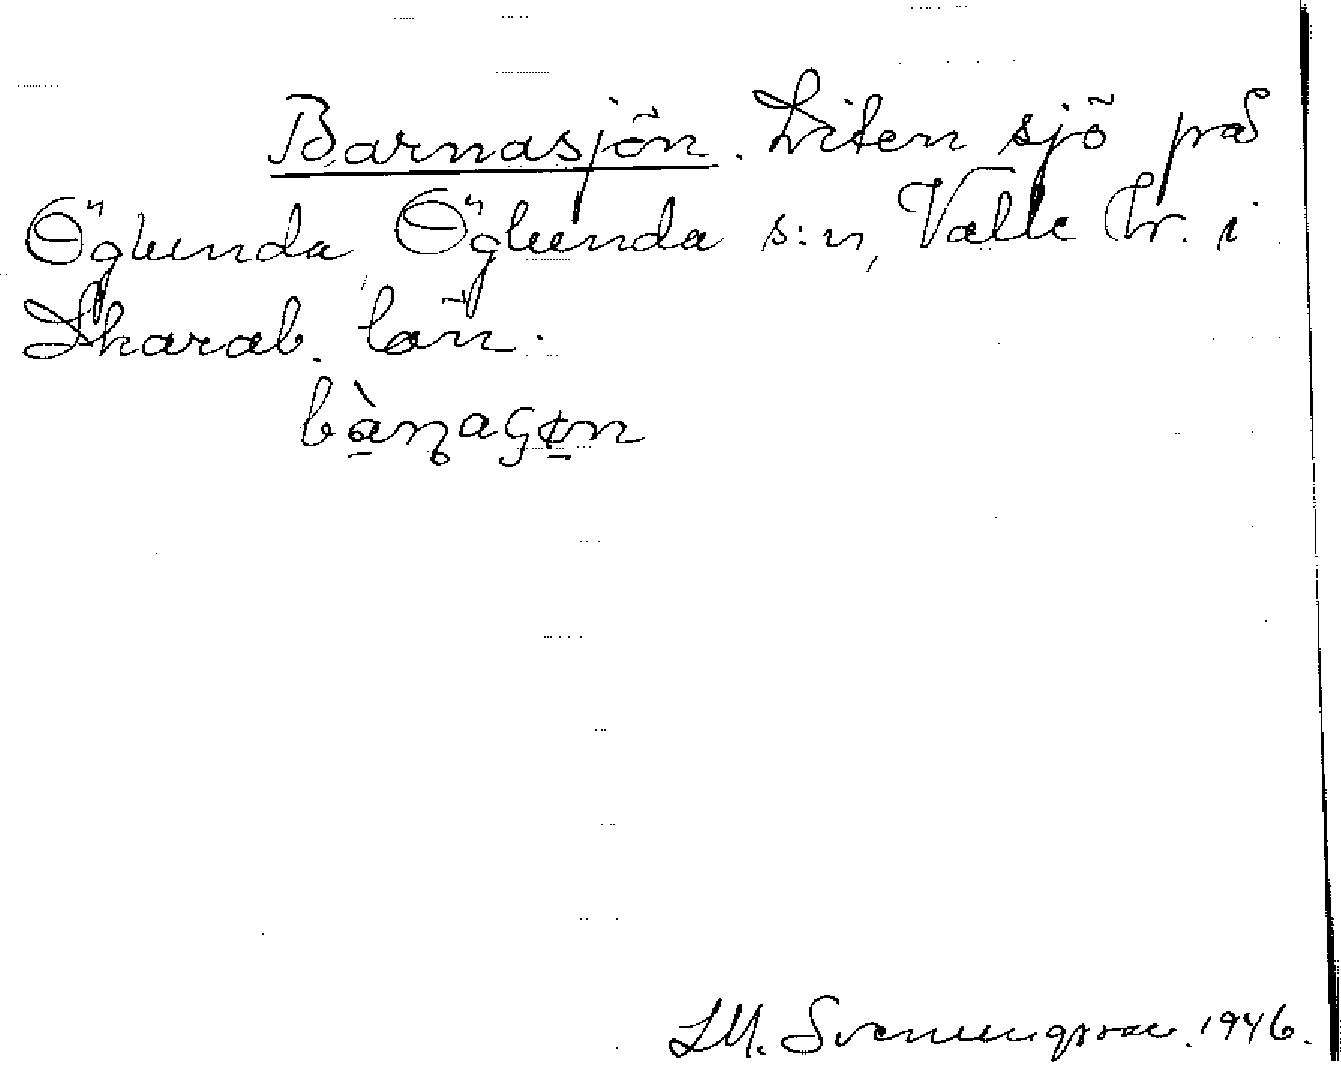 Barnasjön. Liten sjö på
Öglunda, Öglunda s:n, Valle hr. i
Skarab. län.
bàṇaɕøn
S.M. Svenungsson. 1946.